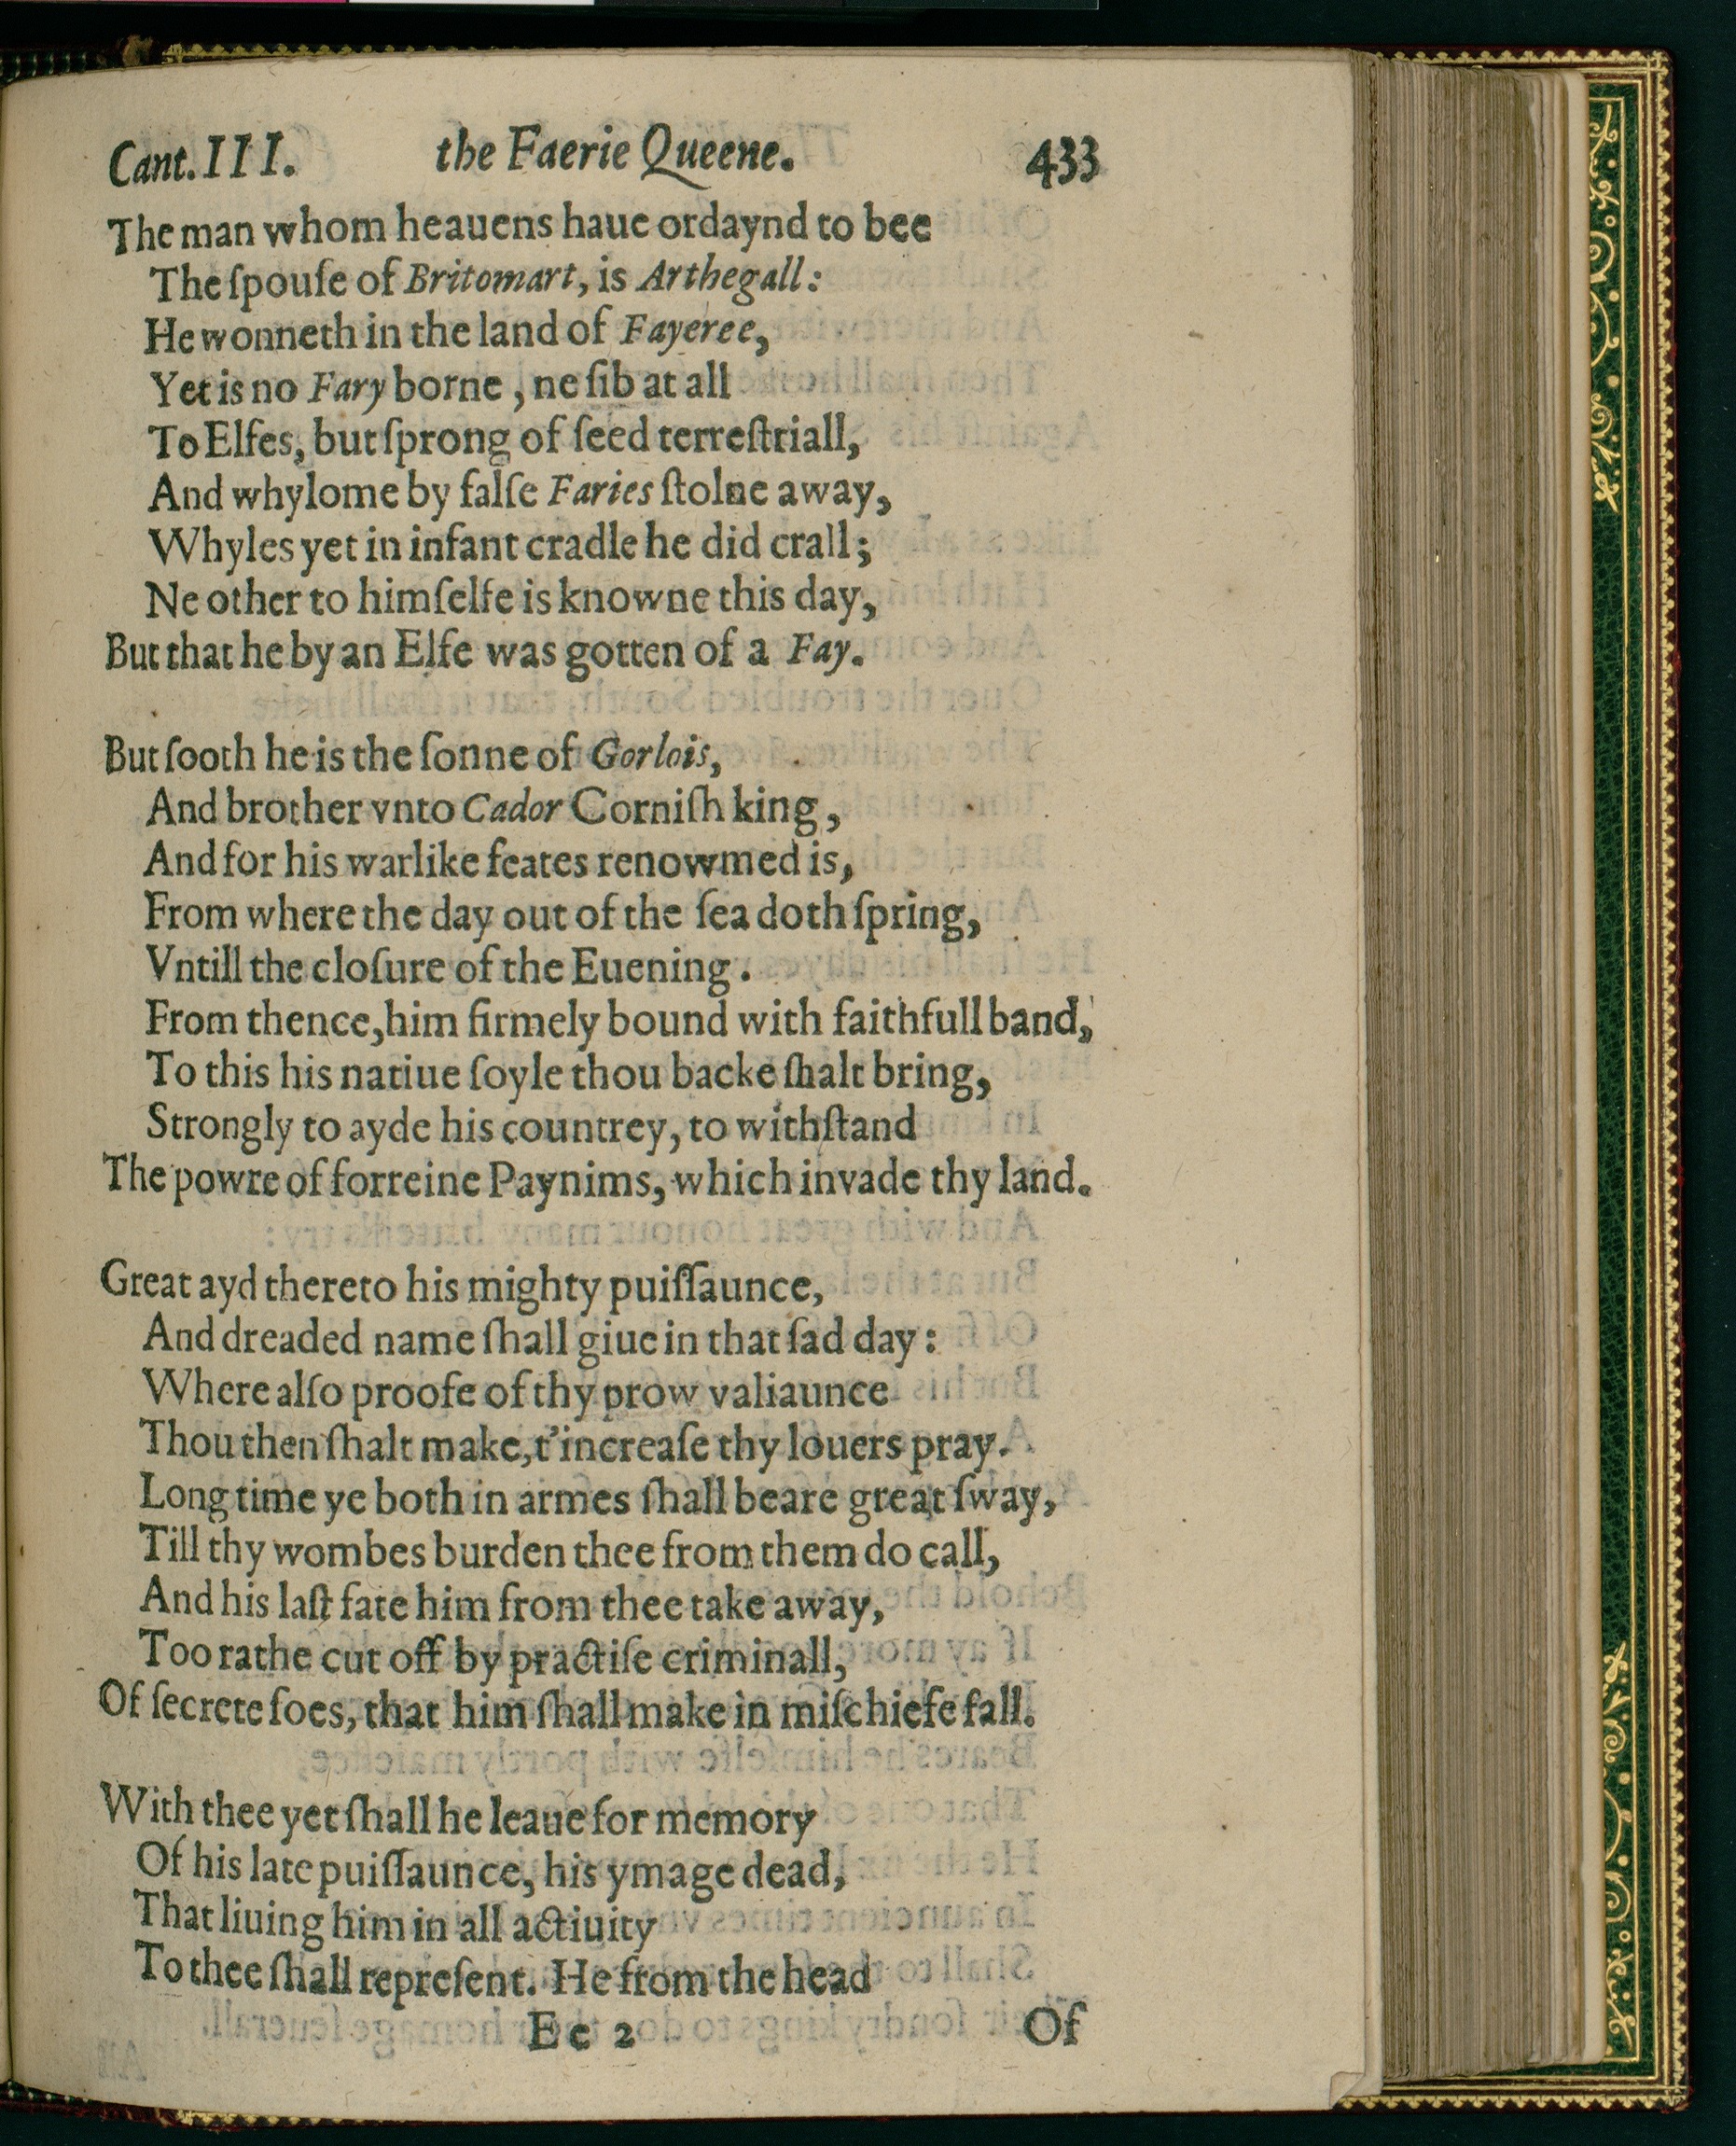 Cant. III. the Faerie Queene. 433
The man whom heauens haue ordaynd to bee
The ſpouſe of Britomart, is Arthegall:
He wonneth in the land of Fayeree,
Yet is no Fary borne, ne ſib at all
To Elfes, but ſprong of ſeed terreſtriall,
And whylome by falſe Faries ſtolne away,
Whyles yet in infant cradle he did crall;
Ne other to himſelfe is knowne this day,
But that he by an Elfe was gotten of a Fay.
But ſooth he is the ſonne of Gorlois,
And brother vnto Cador Corniſh king,
And for his warlike feates renowmed is,
From where the day out of the ſea doth ſpring,
Vntill the cloſure of the Euening.
From thence, him firmely bound with faithfull band,
To this his natiue ſoyle thou backe ſhalt bring,
Strongly to ayde his countrey, to withſtand
The powre of forreine Paynims, which invade thy land.
Great ayd thereto his mighty puiſſaunce,
And dreaded name ſhall giue in that ſad day:
Where alſo proofe of thy prow valiaunce
Thou then ſhalt make, t'increaſe thy louers pray.
Long time ye both in armes ſhall beare great ſway,
Till thy wombes burden thee from them do call,
And his laſt fate him from thee take away,
Too rathe cut off by practiſe criminall,
Of ſecrete foes, that him ſhall make in miſchiefe fall.
With thee yet ſhall he leaue for memory
Of his late puiſſaunce, his ymage dead,
That liuing him in all actiuity
To thee ſhall repreſent. He from the head
Ee 2 Of